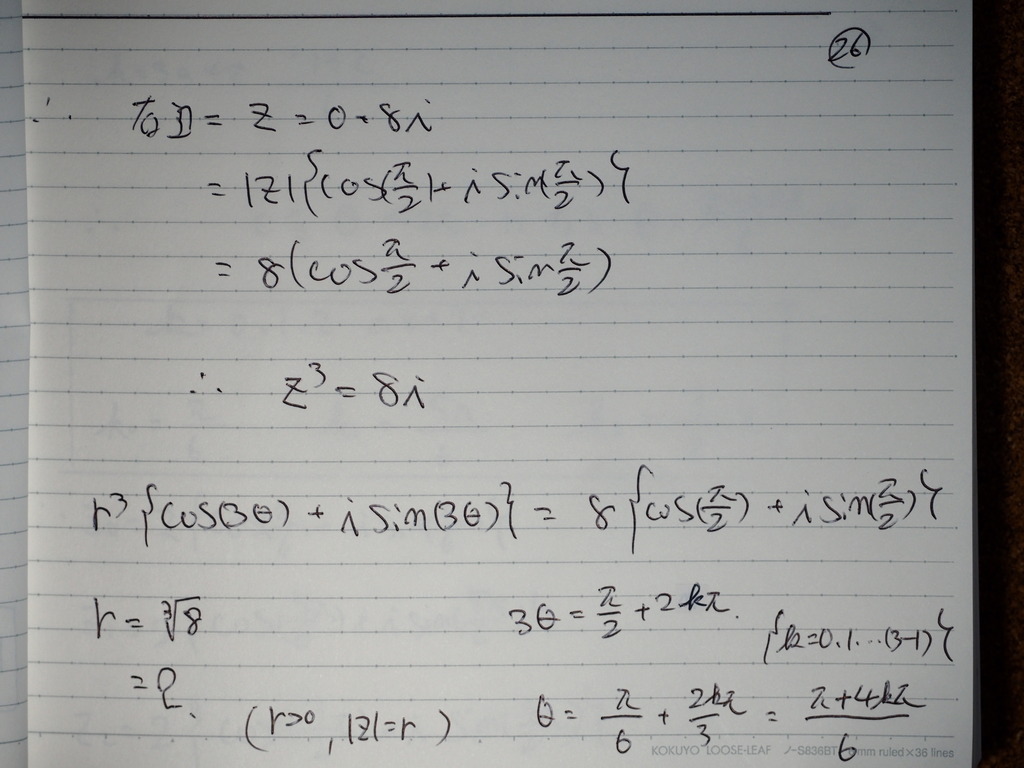 26
∴ 右辺 = z = 0 + 8i
= |z|{cos(π/2) + i sin(π/2)}
= 8(cos π/2 + i sin π/2)
∴ z³ = 8i
r³{cos(3θ) + i sin(3θ)} = 8{cos(π/2) + i sin(π/2)}
r = ∛8
3θ = π/2 + 2kπ.
{k=0.1...(3-1)}
= 2.
(r>0, |z|=r)
θ = π/6 + 2kπ/3 = π+4kπ/6
KOKUYO LOOSE-LEAF ノ-S836BT mm ruled×36 lines